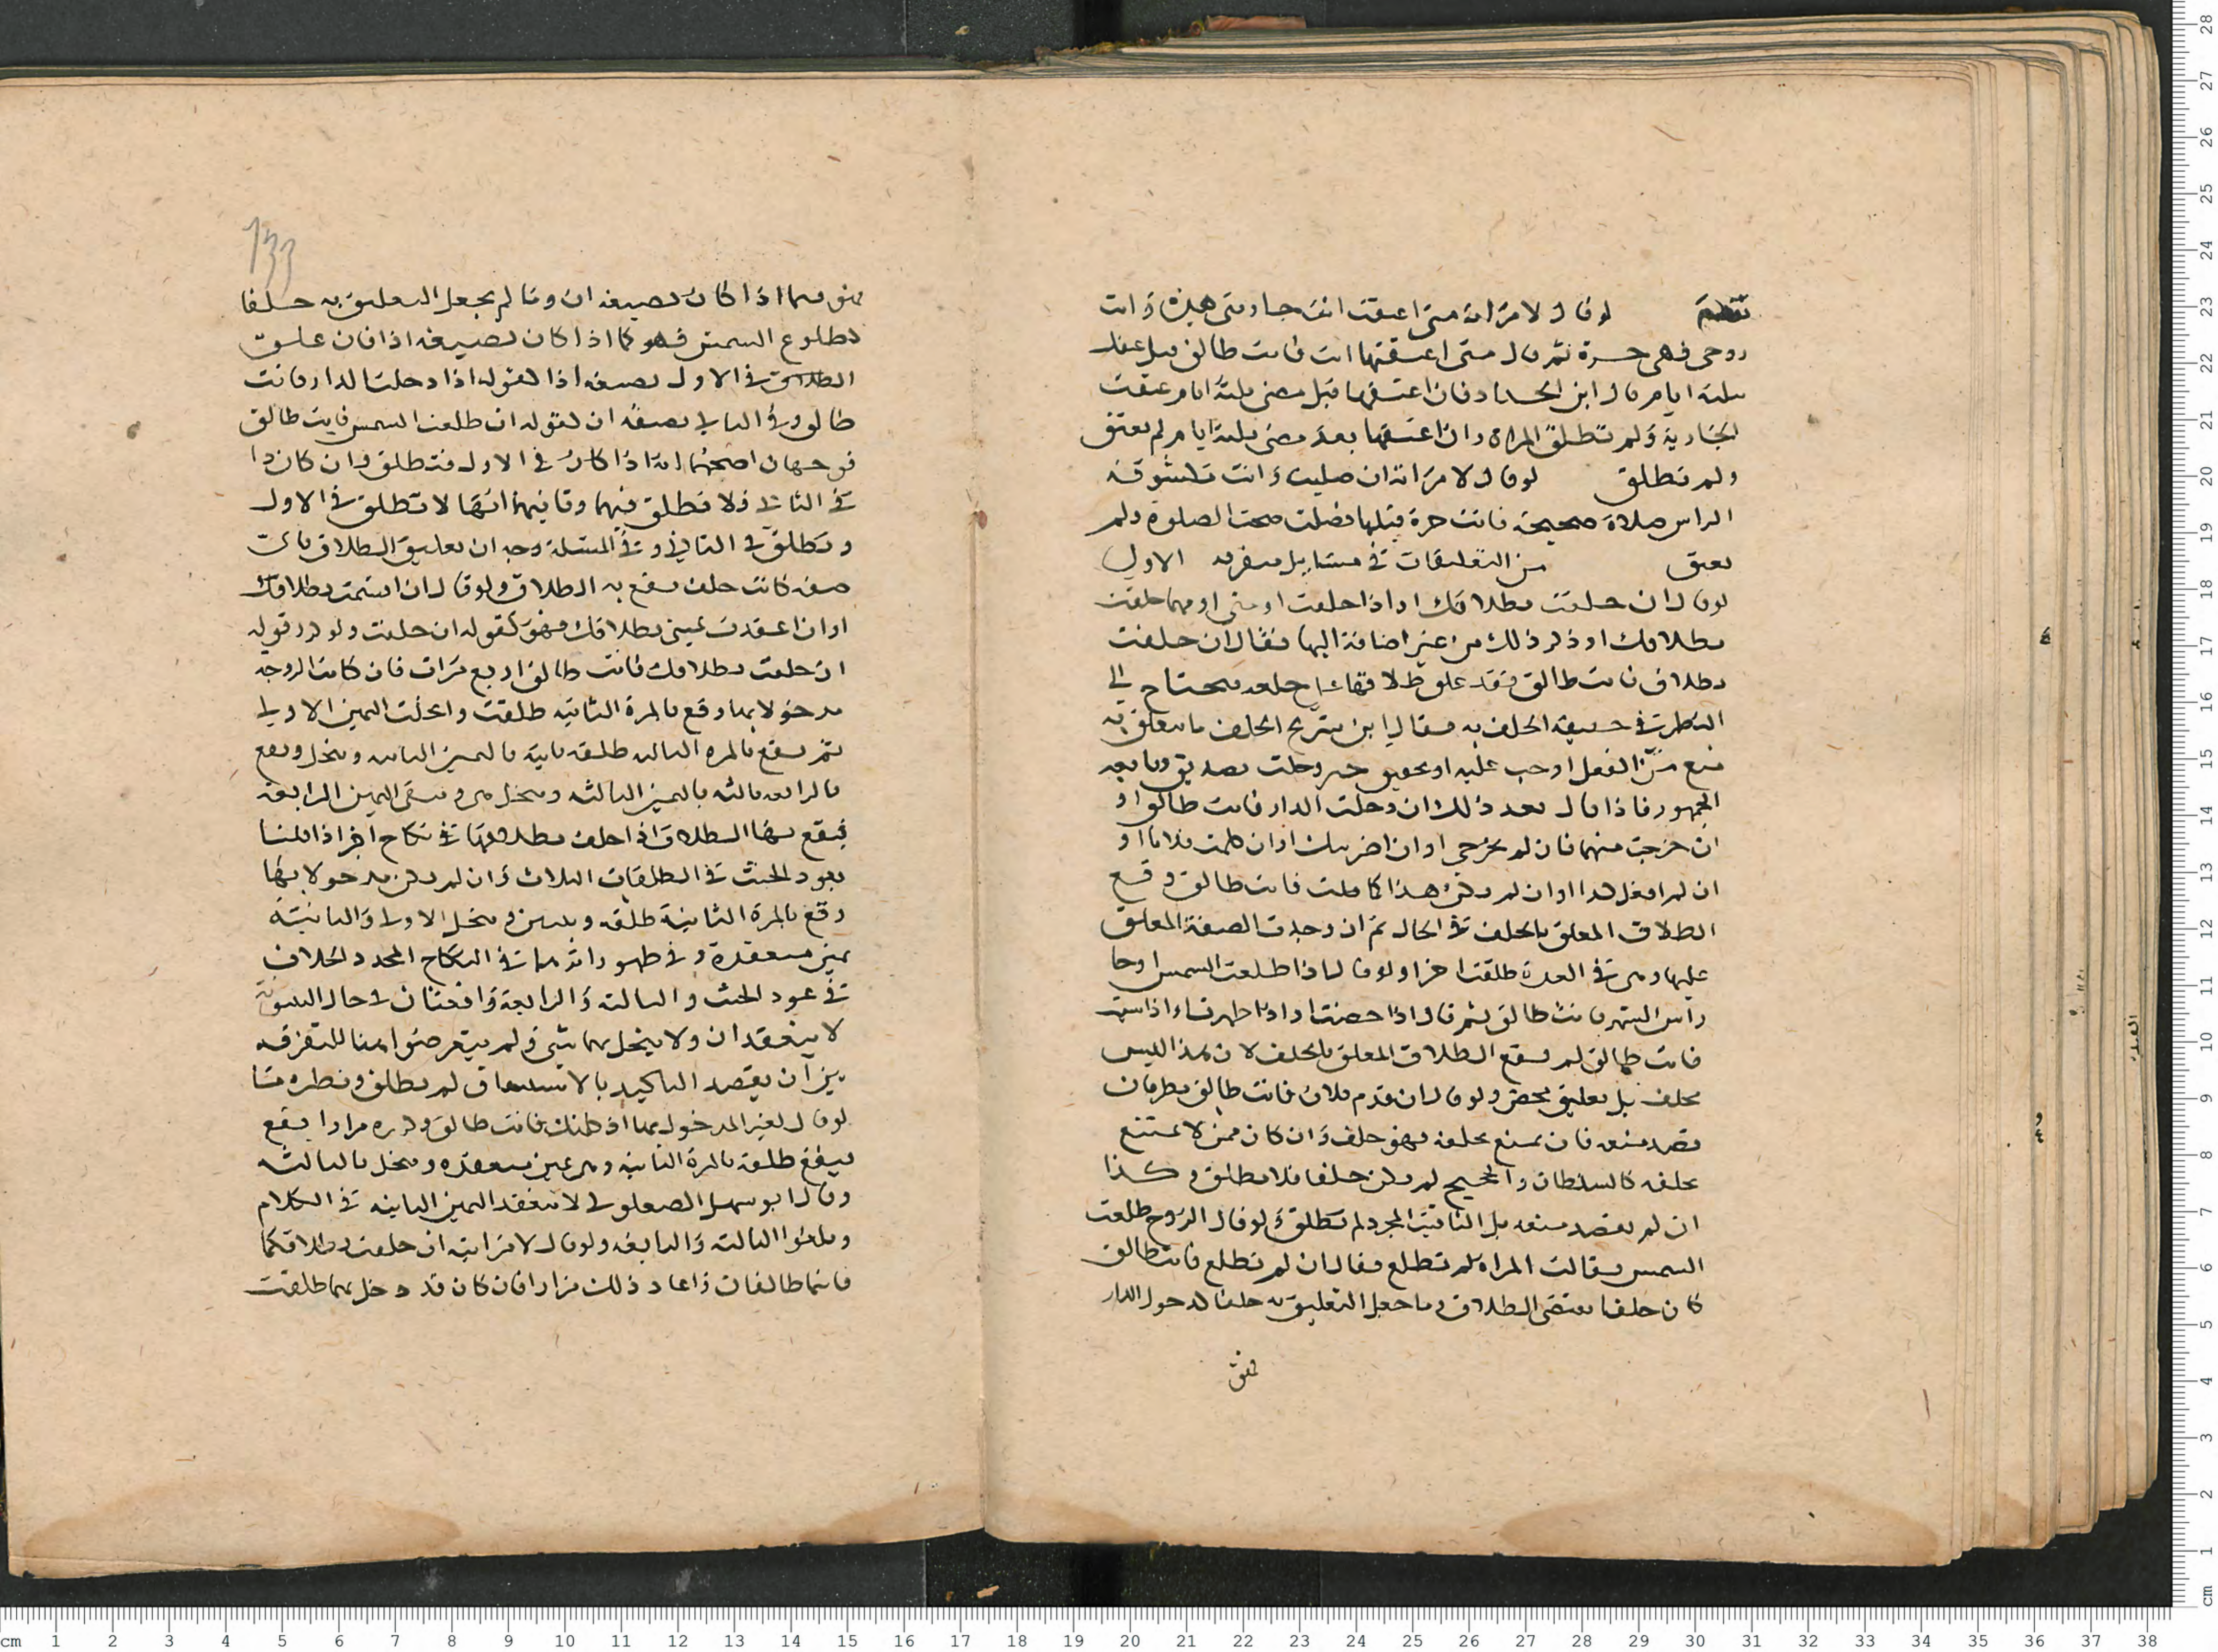 لو قال لامراته متى اعتقت انت جاريتى هذه وانت
زوجى فهى حرة ثم قال متى اعتقتها انت فانت طالق قبل عتقك
بثلثة ايام قال ابن الحداد فان اعتقها قبل مضى ثلثة ايام عتقت
الجارية ولم تطلق المراة وان اعتقها بعد مضى ثلثة ايام لم يعتق
ولم تطلق لو قال لامراته ان صليت وانت مكشوفة
الراس صلاة صحيحة فانت حرة قبلها فصلت صحت الصلوة ولم
تعتق من التعليقات فى مسايل متفرقه الاولى
لو قال ان حلفت بطلاقك او اذا حلفت او متى او مهما حلفت
بطلاقك او ذكر ذلك من غير اضافة اليها فقال ان حلفت
بطلاق فانت طالق فقد علق طلاقها على حلفه فيحتاج الى
النظر فى حقيقة الحلف به فقال ابن سريج الحلف ما تعلق به
منع من الفعل او حب عليه او تحقيق خبر وجلب تصديق وتابعه
الجمهور فاذا قال بعد ذلك ان دخلت الدار فانت طالق او
ان خرجت منها فان لم تخرجى او ان اضربك او ان كلمت فلانا او
ان لم افعل كذا او ان لم يكن هذا كما قلت فانت طالق وقع
الطلاق المعلق بالحلف فى الحال ثم ان وجدت الصفة المعلق
عليها وهى فى العدة طلقت اخرا ولو قال اذا طلعت الشمس او جا
راس الشهر فانت طالق ثم قال اذا حضت او اذا طهرت او اذا شيت
فانت طالق لم يقع الطلاق المعلق بالحلف لان هذا ليس
بحلف بل تعليق محض ولو قال ان قدم فلان فانت طالق نظر فان
قصد منعه فان يمنع بحلفه فهو حلف وان كان ممن لا يمتنع
بحلفه كالسلطان والحجيج لم يكن حلفا فلا تطلق وكذا
ان لم يقصد منعه بل التاقيت المجرد لم تطلق ولو قال الزوج طلعت
الشمس فقالت المراة لم تطلع فقال ان لم تطلع فانت طالق
كان حلفا يقتضى الطلاق وما جعل التعليق به حلفا كدخول الدار
133
فيما اذا كان بصيغة ان وما لم يجعل التعليق به حلفا
كطلوع الشمس فهو كما اذا كان بصيغة اذا فان علق
الطلاق فى الاول بصيغة اذا كقوله اذا دخلت الدار فانت
طالق وفى الثانى بصيغة ان كقوله ان طلعت الشمس فانت طالق
فوجهان اصحهما انه اذا كان فى الاول فتطلق وان كان ذا
فى الثانى فلا تطلق فيهما وثانيهما انها لا تطلق فى الاول
وتطلق فى الثانى وفى المسئلة وجه ان تعليق الطلاق باى
صفه كانت حلف يقع به الطلاق ولو قال ان اقسمت بطلاقك
او ان اعقدت يمينى بطلاقك فهو كقوله ان حلفت ولو كرر قوله
ان حلفت بطلاقك فانت طالق اربع مرات فان كانت الزوجة
مدخولا بها وقع بالمرة الثانيه طلقة وانحلت اليمين الاولى
ثم يقع بالمره الثالثه طلقه ثانية باليمين الثانيه وتنحل ويقع
بالرابعه ثالثه باليمين الثالثه وتنحل هى وتبقى اليمين الرابعه
فيقع بها الطلاق اذا حلف بطلاقها فى نكاح اخر اذا قلنا
بعود الحنث فى الطلقات الثلاث وان لم يكن مدخولا بها
وقع بالمرة الثانية طلقه وتبين وتنحل الاولى والثانية
يمين منعقدة وفى ظهور اثرها فى النكاح المجدد الخلاف
فى عود الحنث والثالثه والرابعة واقعتان فى حال البينونة
لا ينعقدان ولا ينحل بهما شى ولم يتعرضوا هنا للتفرقه
بين ان يقصد التاكيد بالاستيناف لم يطلق ونظره ما
لو قال لغير المدخول بها اذا كلمتك فانت طالق وكرره مرارا يقع
فيقع طلقة بالمرة الثانيه وهى يمين منعقده وتنحل بالثالثه
وقال ابو سهل الصعلوكى لا تنعقد اليمين الثانيه فى الكلام
ويلغوا الثالثه والرابعه ولو قال لامراتيه ان حلفت بطلاقكما
فانتما طالقان واعاد ذلك مرارا فان كان قد دخل بهما طلقت